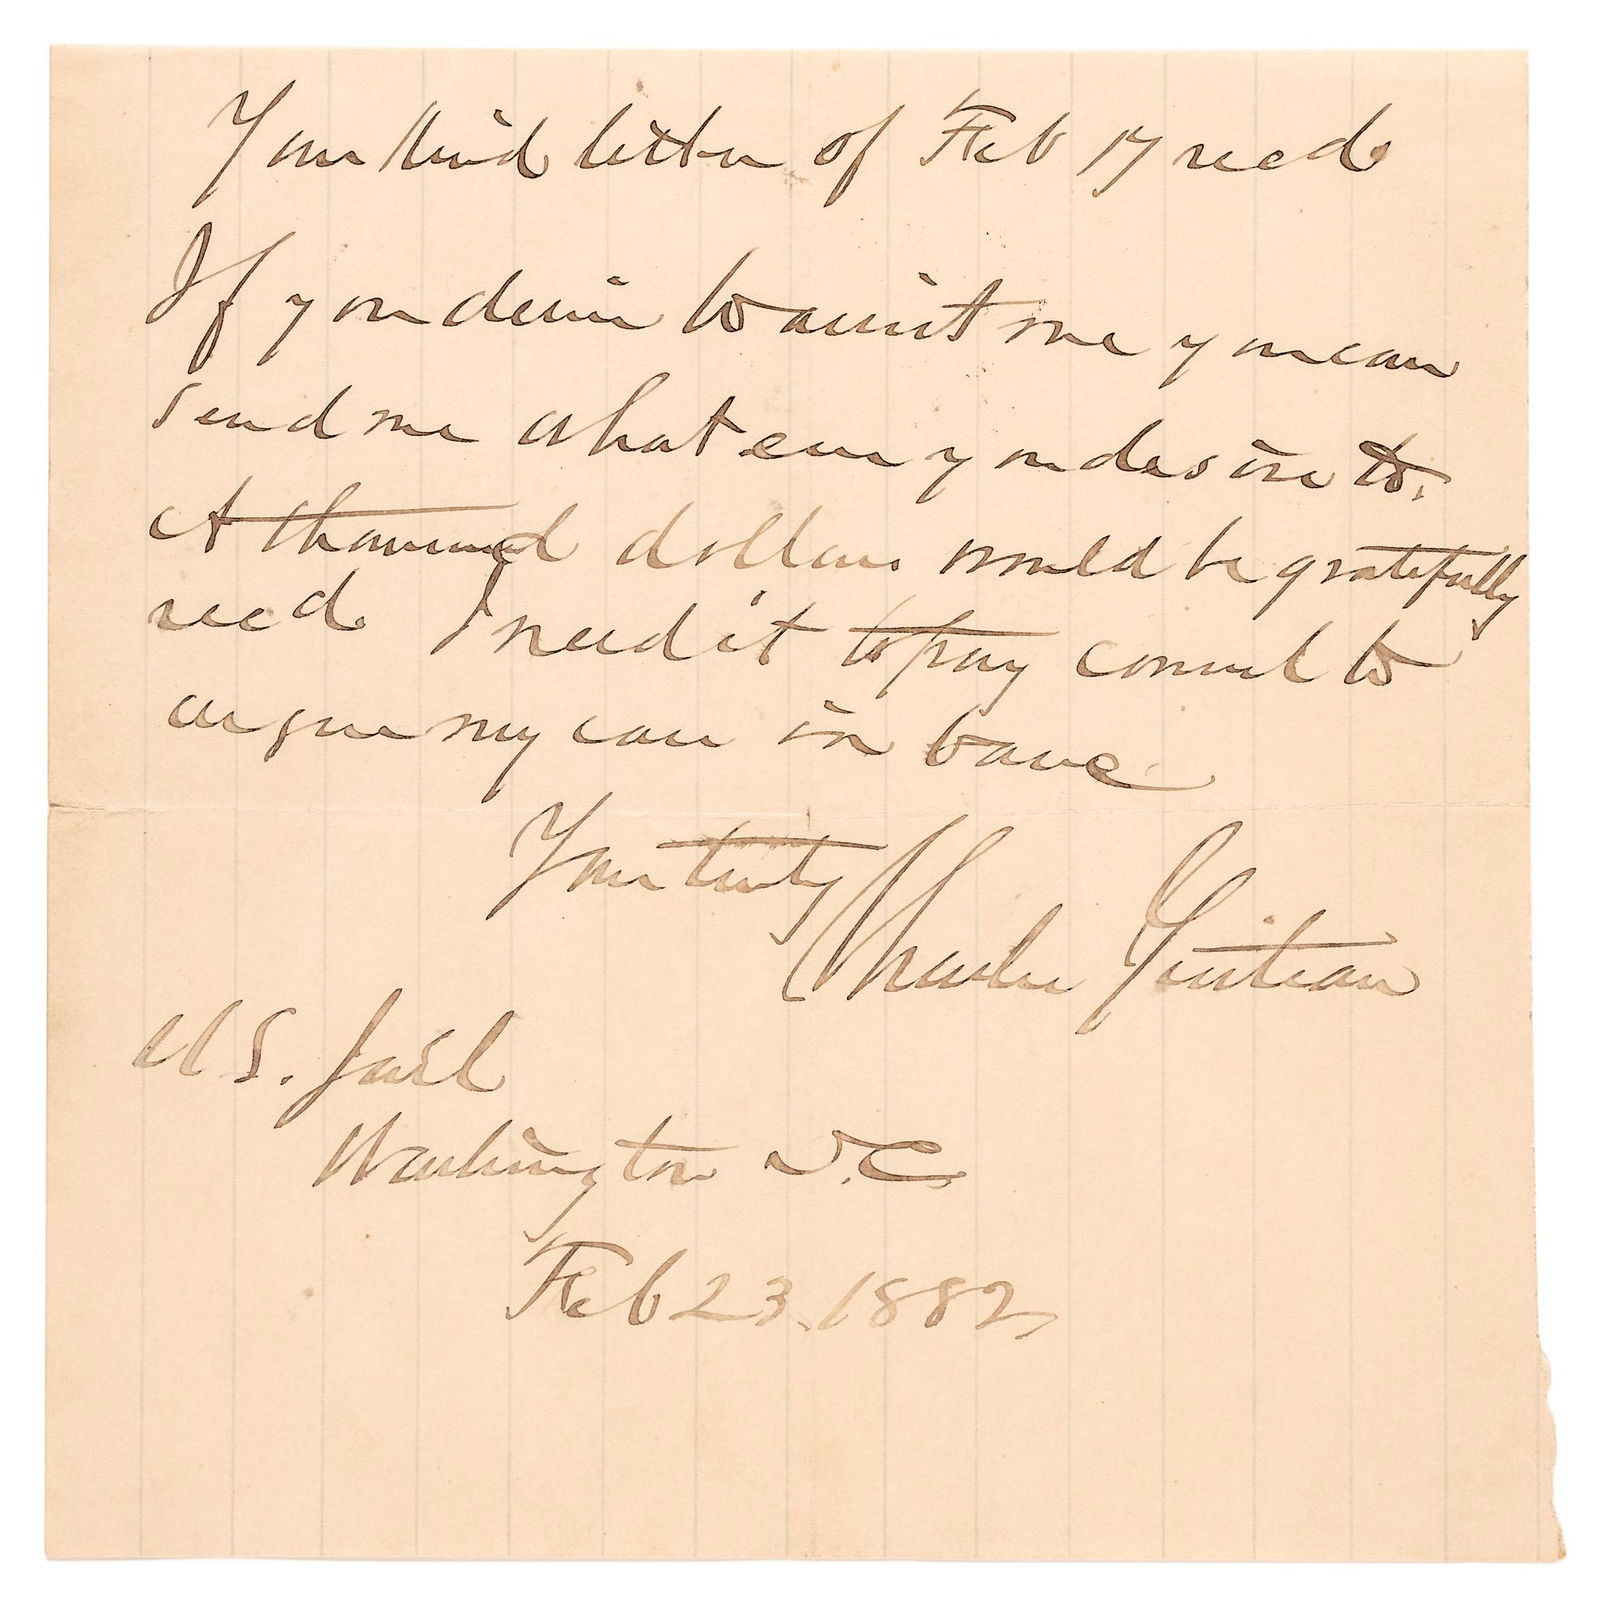 Your kind letter of Feb 17 recd
If you desire to assist me you can
send me whatever you desire to.
A thousand dollars would be gratefully
recd. I need it to pay counsel to
argue my case in banc
Yours truly
Charles Guiteau
US. Jail
Washington D.C.
Feb 23, 1882,